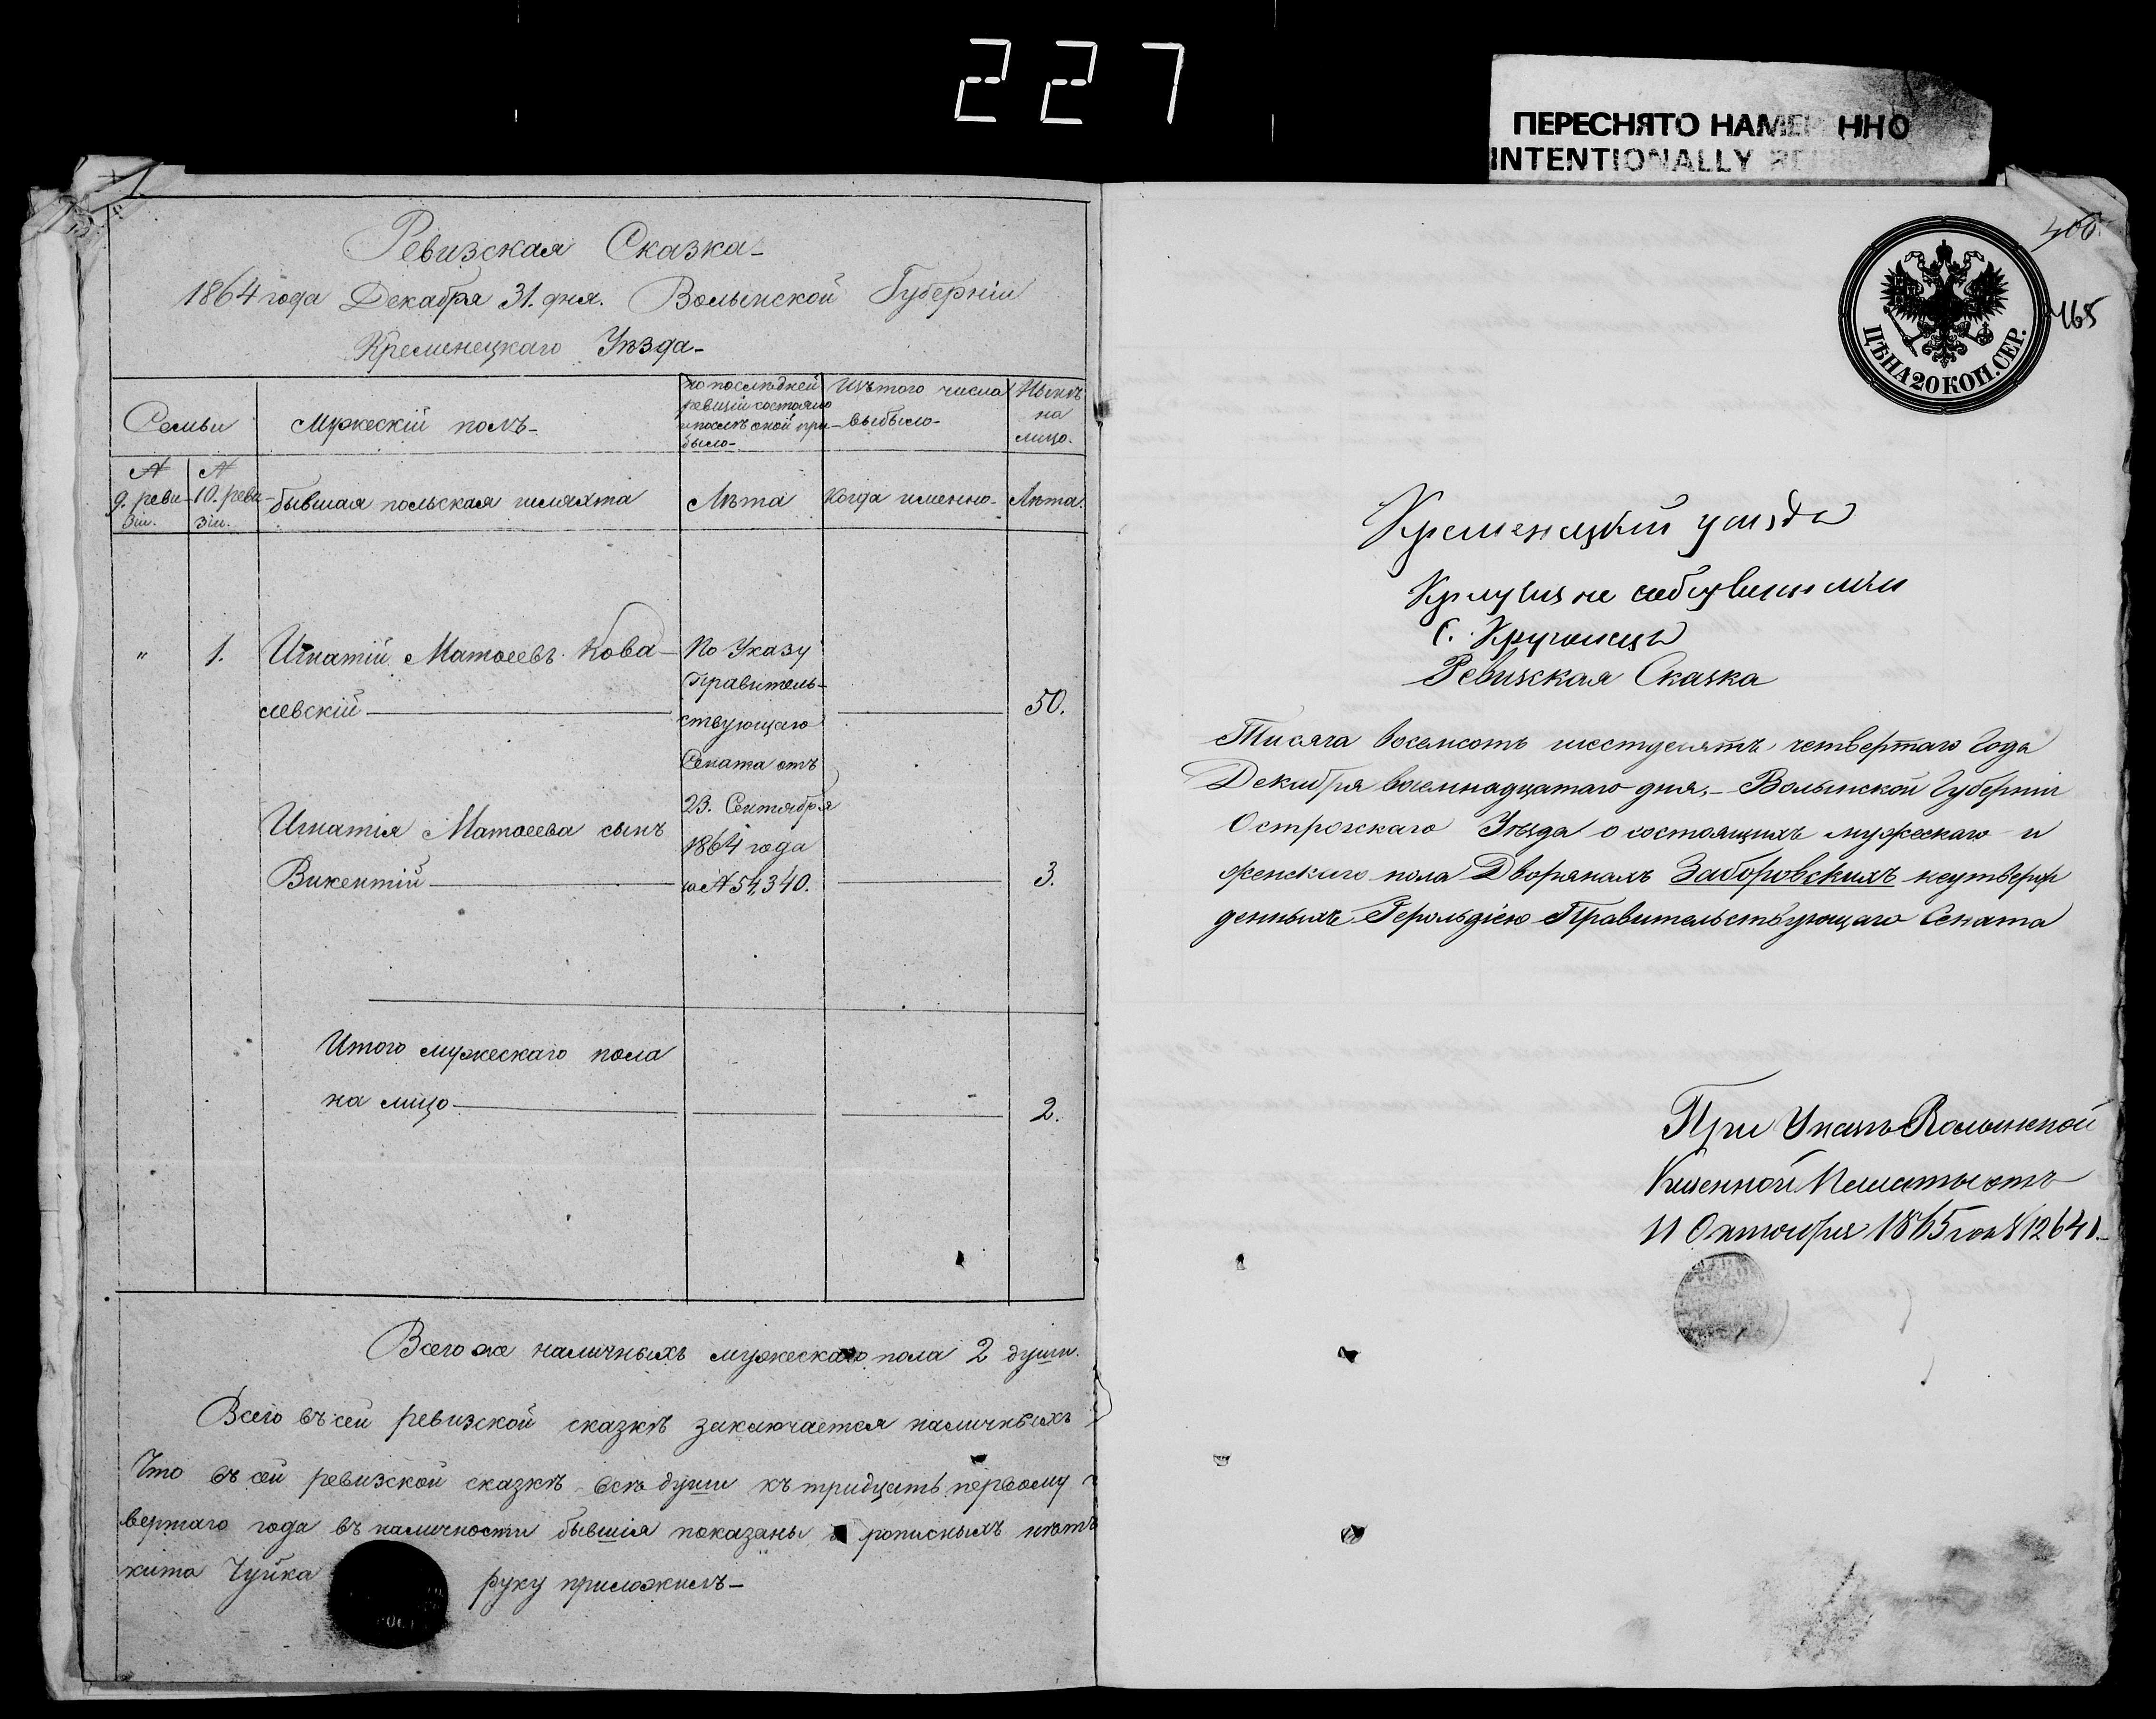 227
ПЕРЕСНЯТО НАМЕР ННО
INTENTIONALLY
Ревизская Сказка
1864 года Декабря 31. дня. Волынской Губерніи
Кременецкаго Уѣзда
Семьи
Мужескій полъ
по послѣдней ревизіи состояло и послѣ оной прибыло
Изъ того числа выбыло
Нынѣ на лицо.
№ 9. ревизіи.
№ 10. ревизіи.
бывшая польская шляхта
Лѣта
Когда именно
Лѣта.
" 1. Игнатій Матвеевъ Кова-
левскій 50.
По Указу
Правитель-
ствующаго
Сената отъ
23. Сентября
1864 года
за № 54,340.
Игнатія Матвеева сынъ
Викентій 3.
Итого мужескаго пола
на лицо 2.
Всего же наличныхъ мужескаго пола 2 души.
Всего въ сей ревизской сказкѣ заключается наличныхъ
Что въ сей ревизской сказкѣ всѣ души къ тридцать первому
вертаго года въ наличности бывшія показаны и прописныхъ нѣтъ
кита Чуйка руку приложилъ
406
465
ЦѢНА 20 КОП. СЕР.
Кременецкій уѣздъ
с.
Ревизская Сказка
Тисяча восемсотъ шестдесятъ четвертаго Года
Декабря восемнадцатаго дня, Волынской Губерніи
Острожскаго Уѣзда о состоящихъ мужескаго и
женскаго пола Дворянахъ Заборовскихъ неутверж
денныхъ Герольдіею Правительствующаго Сената
При Указѣ Волынской
Казенной Палаты отъ
11 Октября 1865 года № 12641.